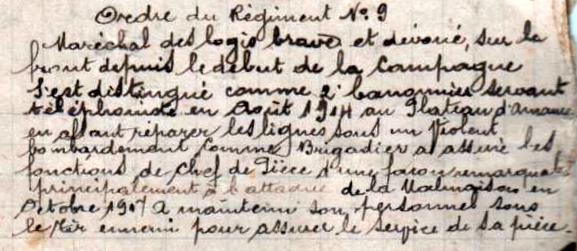 Ordre du Régiment No 9
Maréchal des logis brave et dévoué, sur le
front depuis le début de la Campagne
S'est distingué comme 2e canonnier servant
téléphoniste en Août 1914 au Plateau d'Amance
en allant réparer les lignes sous un violent
bombardement Comme Brigadier a assuré les
fonctions de Chef de Pièce d'une façon remarquable
principalement à l'attaque de la Malmaison en
Octobre 1917 A maintenu son personnel sous
le tir ennemi pour assurer le service de sa pièce.